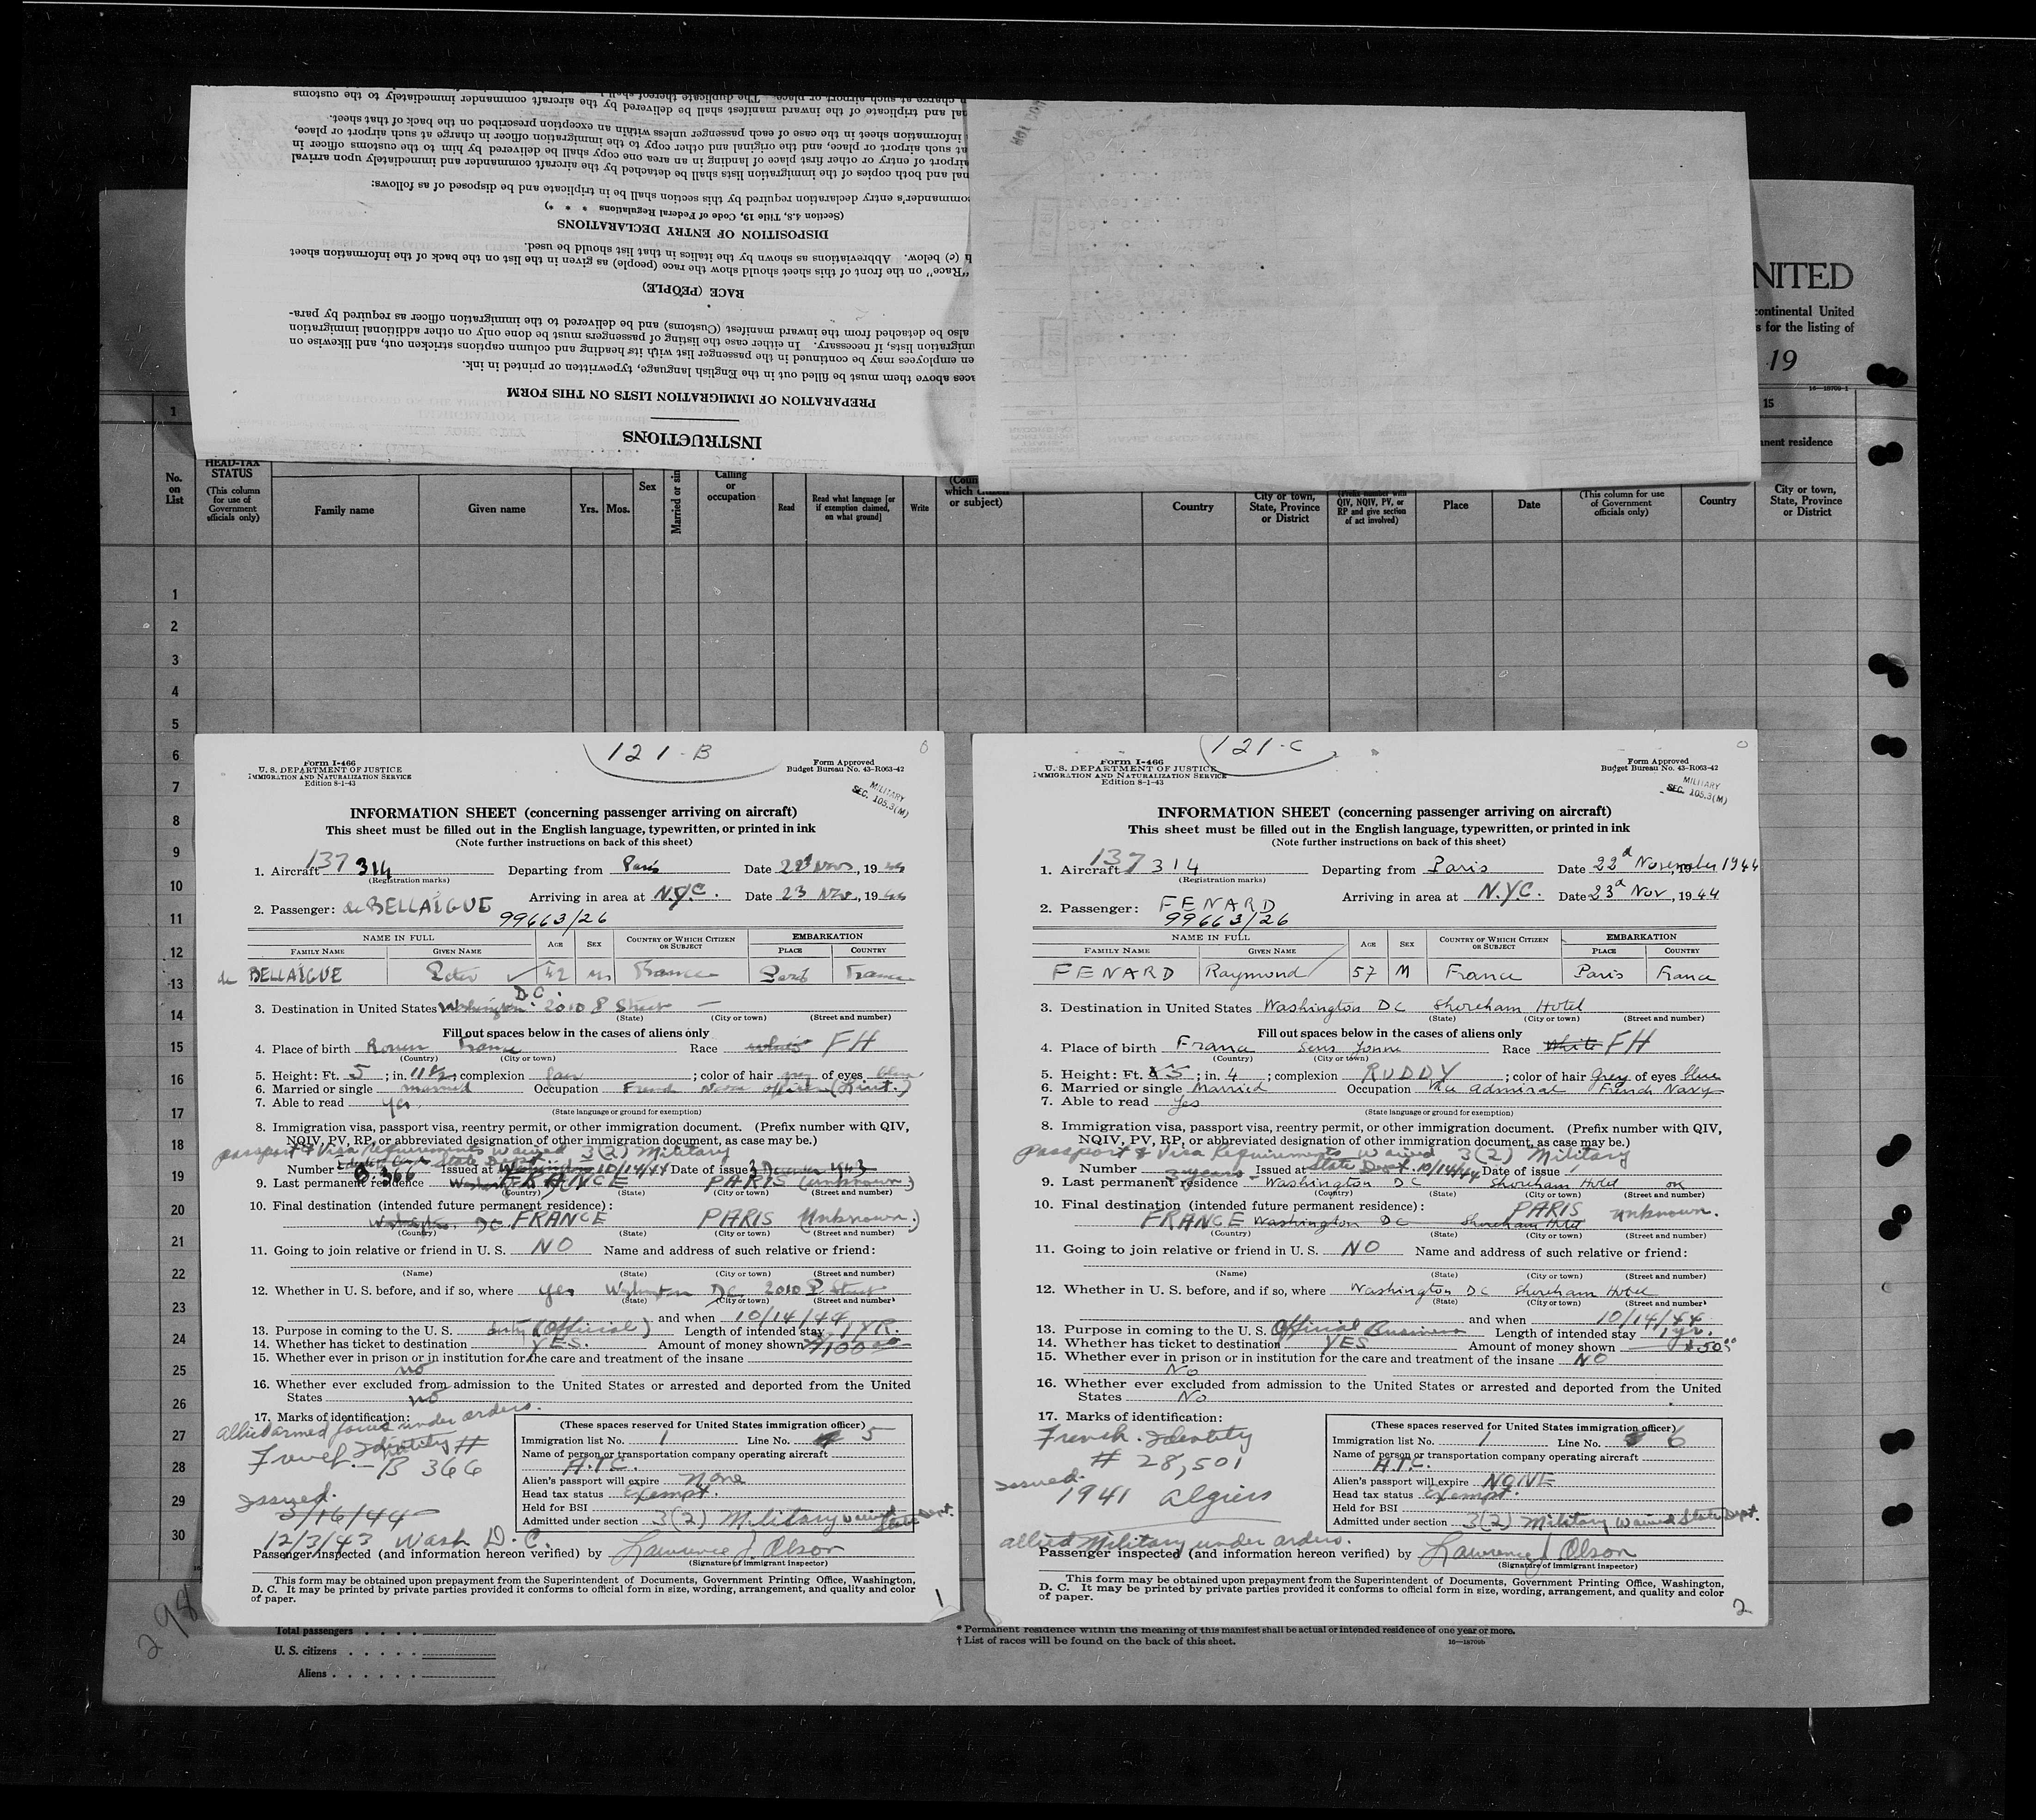 INSTRUCTIONS
PREPARATION OF IMMIGRATION LISTS ON THIS FORM
aces above them must be filled out in the English language, typewritten or printed in ink.
en employees may be continued in the passenger list with its heading and column captions stricken out, and likewise on
migration lists, if necessary. In either case the listing of passengers must be done only on other additional immigration
also be detached from the inward manifest (Customs) and be delivered to the immigration officer as required by para-
RACE (PEOPLE)
"Race" on the front of this sheet should show the race (people) as given in the list on the back of the information sheet
h (c) below. Abbreviations as shown by the italics in that list should be used.
DISPOSITION OF ENTRY DECLARATIONS
(Section 4.5, Title 19, Code of Federal Regulations * * *)
ommander's entry declaration required by this section shall be in triplicate and be disposed of as follows:
nal and both copies of the immigration lists shall be detached by the aircraft commander and immediately upon arrival
airport of entry or other first place of landing in an area one copy shall be delivered by him to the customs officer in
at such airport or place, and the original and other copy to the immigration officer in charge at such airport or place,
information sheet in the case of each passenger unless within an exception prescribed on the back of that sheet.
nal and triplicate of the inward manifest shall be delivered by the aircraft commander immediately to the customs
n charge at such airport or place. The duplicate thereof shall
NITED
continental United
s for the listing of
19
16—18709-1
1
15
nent residence
No. on List
HEAD-TAX STATUS
(This column for use of Government officials only)
Family name
Given name
Yrs. Mos.
Sex
Married or sin
Calling or occupation
Read
Read what language [or if exemption claimed, on what ground]
Write
(Coun
which citizen
or subject)
Country
City or town, State, Province or District
(Prefix number with QIV, NQIV, PV, or RP and give section of act involved)
Place
Date
(This column for use of Government officials only)
Country
City or town, State, Province or District
1
2
3
4
5
6
7
8
9
10
11
12
13
14
15
16
17
18
19
20
21
22
23
24
25
26
27
28
29
30
121-B
Form I-466
U. S. DEPARTMENT OF JUSTICE
IMMIGRATION AND NATURALIZATION SERVICE
Edition 8-1-43
Form Approved
Budget Bureau No. 43-R063-42
MILITARY
SEC. 105.3(M)
INFORMATION SHEET (concerning passenger arriving on aircraft)
This sheet must be filled out in the English language, typewritten, or printed in ink
(Note further instructions on back of this sheet)
1. Aircraft 137 314 Departing from Paris Date 22d Nov, 1944
(Registration marks)
Arriving in area at N.Y.C. Date 23 Nov, 1944
2. Passenger: de BELLAIGUE
99663/26
NAME IN FULL AGE SEX COUNTRY OF WHICH CITIZEN OR SUBJECT EMBARKATION
FAMILY NAME GIVEN NAME PLACE COUNTRY
de BELLAIGUE 52 M France Paris France
3. Destination in United States Washington D.C. 2010 P Street
(State) (City or town) (Street and number)
Fill out spaces below in the cases of aliens only
4. Place of birth Rouen France Race white FH
(Country) (City or town)
5. Height: Ft. 5; in. 11 1/2; complexion fair; color of hair grey of eyes blue
6. Married or single married Occupation French naval officer (Lieut.)
7. Able to read yes
(State language or ground for exemption)
8. Immigration visa, passport visa, reentry permit, or other immigration document. (Prefix number with QIV,
NQIV, PV, RP, or abbreviated designation of other immigration document, as case may be.)
passport & Visa Requirements Waived 3(2) Military
Number B.366 Issued at State Dept. Washington 10/14/44 Date of issue 3 December 1943
9. Last permanent residence FRANCE PARIS (unknown)
(Country) (State) (City or town) (Street and number)
10. Final destination (intended future permanent residence):
Washington DC FRANCE PARIS (Unknown.)
(Country) (State) (City or town) (Street and number)
11. Going to join relative or friend in U. S. NO Name and address of such relative or friend:
(Name) (State) (City or town) (Street and number)
12. Whether in U. S. before, and if so, where yes Washington DC 2010 P Street
(State) (City or town) (Street and number)
and when 10/14/44
13. Purpose in coming to the U. S. duty (Official) Length of intended stay 1 YR.
14. Whether has ticket to destination YES. Amount of money shown $100.00
15. Whether ever in prison or in institution for the care and treatment of the insane
no
16. Whether ever excluded from admission to the United States or arrested and deported from the United
States no
17. Marks of identification:
Allied armed forces under orders.
French Identity #
B 366
Issued.
3/16/44
12/3/43 Wash D.C.
(These spaces reserved for United States immigration officer)
Immigration list No. 1 Line No. 5
Name of person or transportation company operating aircraft
A.T.C.
Alien's passport will expire none
Head tax status Exempt.
Held for BSI
Admitted under section 3(2) Military waived State Dept.
Passenger inspected (and information hereon verified) by Lawrence J. Olson
(Signature of immigrant inspector)
This form may be obtained upon prepayment from the Superintendent of Documents, Government Printing Office, Washington,
D. C. It may be printed by private parties provided it conforms to official form in size, wording, arrangement, and quality and color
of paper.
1
121-C
Form I-466
U. S. DEPARTMENT OF JUSTICE
IMMIGRATION AND NATURALIZATION SERVICE
Edition 8-1-43
Form Approved
Budget Bureau No. 43-R063-42
MILITARY
SEC. 105.3(M)
INFORMATION SHEET (concerning passenger arriving on aircraft)
This sheet must be filled out in the English language, typewritten, or printed in ink
(Note further instructions on back of this sheet)
1. Aircraft 137 314 Departing from Paris Date 22d November 1944
(Registration marks)
Arriving in area at N.Y.C. Date 23d Nov, 1944
2. Passenger: FENARD
99663/26
NAME IN FULL AGE SEX COUNTRY OF WHICH CITIZEN OR SUBJECT EMBARKATION
FAMILY NAME GIVEN NAME PLACE COUNTRY
FENARD Raymond 57 M France Paris France
3. Destination in United States Washington DC Shoreham Hotel
(State) (City or town) (Street and number)
Fill out spaces below in the cases of aliens only
4. Place of birth France Sens Yonne Race White FH
(Country) (City or town)
5. Height: Ft. 5; in. 4; complexion RUDDY; color of hair Grey of eyes blue
6. Married or single Married Occupation Vice admiral French Navy
7. Able to read Yes
(State language or ground for exemption)
8. Immigration visa, passport visa, reentry permit, or other immigration document. (Prefix number with QIV,
NQIV, PV, RP, or abbreviated designation of other immigration document, as case may be.)
Passport & Visa Requirements waived 3(2) Military
Number Issued at State Dept. 10/14/44 Date of issue
9. Last permanent residence 2 years - Washington DC Shoreham Hotel
(Country) (State) (City or town) (Street and number)
10. Final destination (intended future permanent residence):
FRANCE Washington DC Shoreham Hotel PARIS unknown.
(Country) (State) (City or town) (Street and number)
11. Going to join relative or friend in U. S. NO Name and address of such relative or friend:
(Name) (State) (City or town) (Street and number)
12. Whether in U. S. before, and if so, where Washington DC Shoreham Hotel
(State) (City or town) (Street and number)
and when 10/14/44
13. Purpose in coming to the U. S. Official Business Length of intended stay 1 yr.
14. Whether has ticket to destination YES Amount of money shown $50.00
15. Whether ever in prison or in institution for the care and treatment of the insane NO
No
16. Whether ever excluded from admission to the United States or arrested and deported from the United
States No
17. Marks of identification:
French. Identity
# 28,501
Issued.
1941 Algiers
Allied Military under orders.
(These spaces reserved for United States immigration officer)
Immigration list No. 1 Line No. 6
Name of person or transportation company operating aircraft
A.T.C.
Alien's passport will expire NONE
Head tax status Exempt.
Held for BSI
Admitted under section 3(2) Military Waived State Dept.
Passenger inspected (and information hereon verified) by Lawrence J. Olson
(Signature of immigrant inspector)
This form may be obtained upon prepayment from the Superintendent of Documents, Government Printing Office, Washington,
D. C. It may be printed by private parties provided it conforms to official form in size, wording, arrangement, and quality and color
of paper.
2
298
Total passengers
U. S. citizens
Aliens
* Permanent residence within the meaning of this manifest shall be actual or intended residence of one year or more.
† List of races will be found on the back of this sheet.
16—18709b